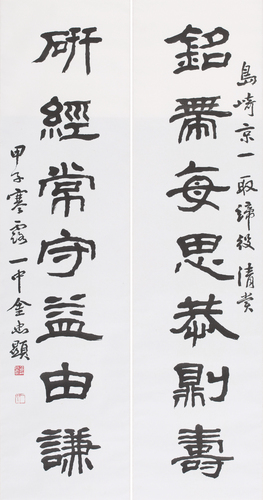 島崎京一取締役清賞
銘帶每思恭則壽
硏經常守益由謙
甲子寒露一中金忠顯